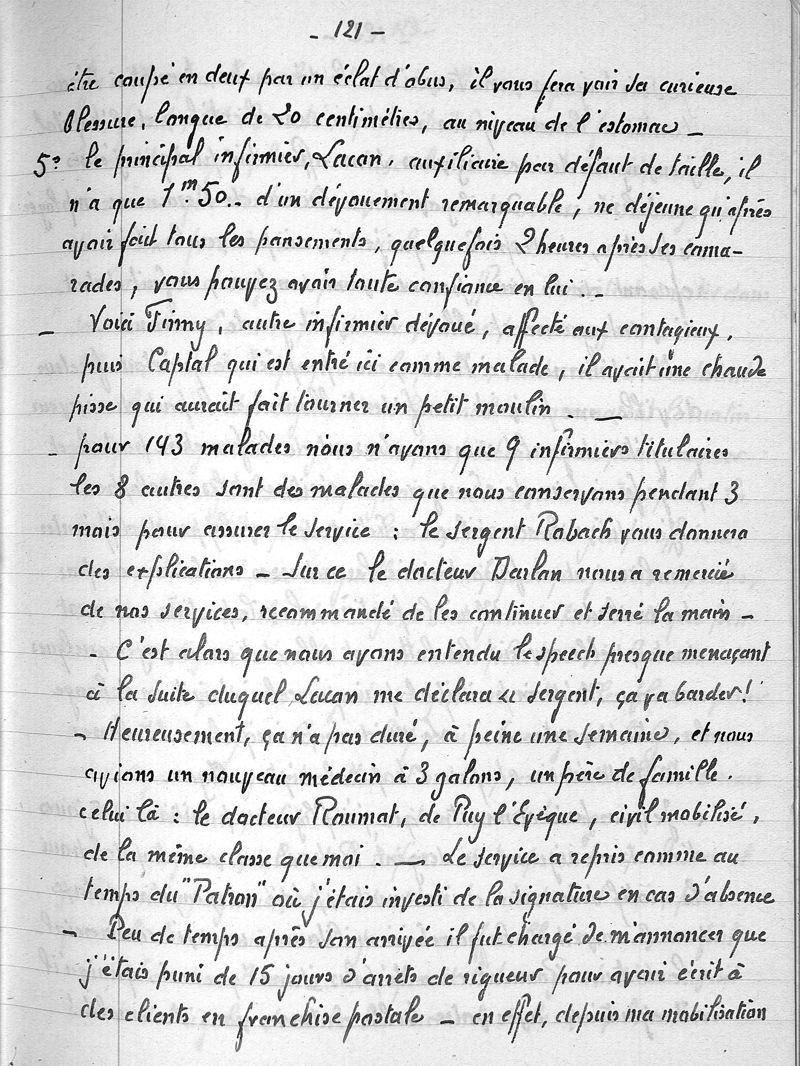 - 121 -
être coupé en deux par un éclat d'obus, il vous fera voir sa curieuse
blessure, longue de 20 centimètres, au niveau de l'estomac _
5° le principal infirmier, Lacan, auxiliaire par défaut de taille, il
n'a que 1m.50.. d'un dévouement remarquable, ne déjeune qu'après
avoir fait tous les pansements, quelquefois 2 heures après ses cama-
rades, vous pouvez avoir toute confiance en lui . _
_ Voici Firmy, autre infirmier dévoué, affecté aux contagieux,
puis Captal qui est entré ici comme malade, il avait une chaude
pisse qui aurait fait tourner un petit moulin . _
_ pour 143 malades nous n'avons que 9 infirmiers titulaires
les 8 autres sont des malades que nous conservons pendant 3
mois pour assurer le service : le sergent Rabach vous donnera
des explications _ Sur ce le docteur Darlan nous a remercié
de nos services, recommandé de les continuer et serré la main _
_ C'est alors que nous avons entendu le speech presque menaçant
à la suite duquel Lacan me déclara « sergent, ça va barder !
_ Heureusement, ça n'a pas duré, à peine une semaine, et nous
avions un nouveau médecin à 3 galons, un père de famille.
celui là : le docteur Roumat, de Puy l'Evèque, civil mobilisé,
de la même classe que moi . _ Le service a repris comme au
temps du "Patron" où j'étais investi de la signature en cas d'absence
_ Peu de temps après son arrivée il fut chargé de m'annoncer que
j'étais puni de 15 jours d'arrêts de rigueur pour avoir écrit à
des clients en franchise postale _ en effet, depuis ma mobilisation